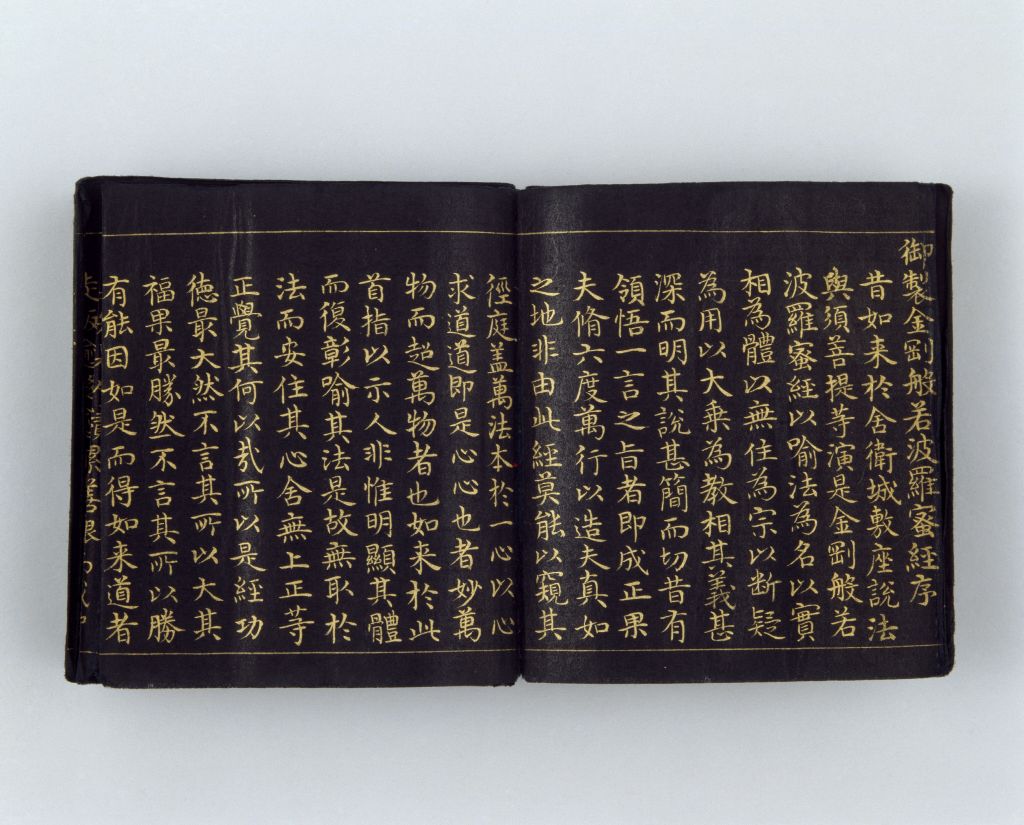 御製金剛般若波羅蜜經序
昔如来於舍衛城敷座說法
與須菩提等演是金剛般若
波羅蜜經以喻法為名以實
相為體以無住為宗以断疑
為用以大乗為教相其義甚
深而明其說甚簡而切昔有
領悟一言之旨者即成正果
夫脩六度萬行以造夫真如
之地非由此經莫能以窺其
徑庭盖萬法本於一心以心
求道道即是心心也者妙萬
物而超萬物者也如来於此
首指以示人非惟明顯其體
而復彰喻其法是故無取於
法而安住其心舍無上正等
正覺其何以㢤所以是經功
徳最大然不言其所以大其
福果最勝然不言其所以勝
有能因如是而得如来道者